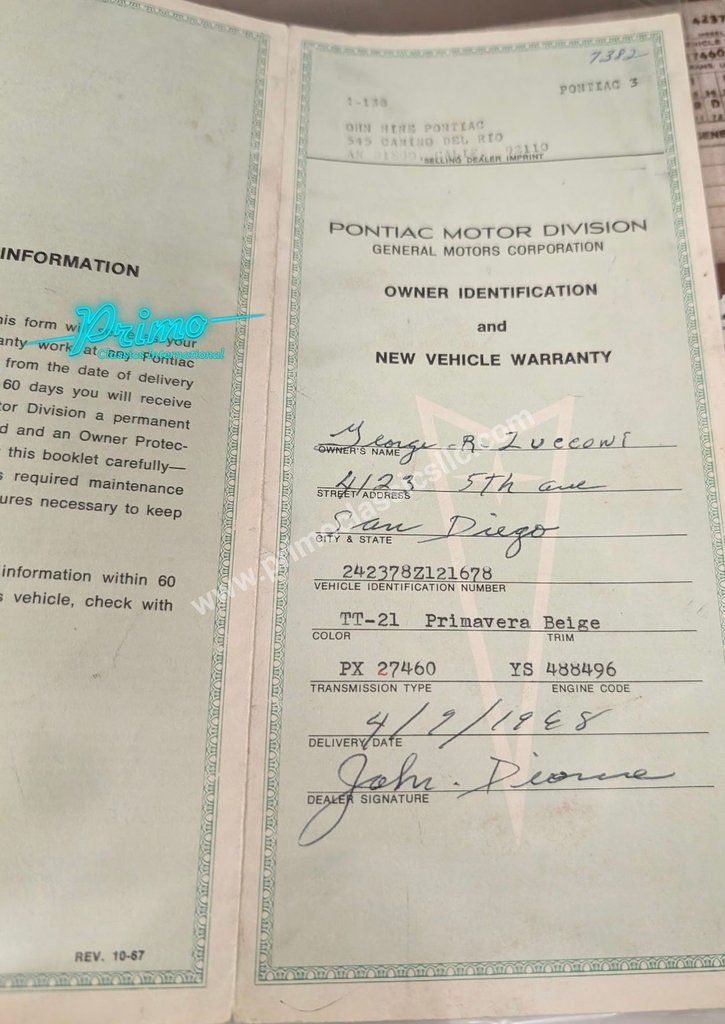 INFORMATION
his form wi your
anty work at any Pontiac
from the date of delivery
60 days you will receive
tor Division a permanent
d and an Owner Protec-
this booklet carefully—
s required maintenance
ures necessary to keep
information within 60
s vehicle, check with
REV. 10-67
Primo
Classics International
7382
PONTIAC 3
1-138
OHN HINE PONTIAC
545 CAMINO DEL RIO
AN DIEGO, CALIF. 92110
SELLING DEALER IMPRINT
PONTIAC MOTOR DIVISION
GENERAL MOTORS CORPORATION
OWNER IDENTIFICATION
and
NEW VEHICLE WARRANTY
George R. Zucconi
OWNER'S NAME
4123 5th ave
STREET ADDRESS
San Diego
CITY & STATE
242378Z121678
VEHICLE IDENTIFICATION NUMBER
TT-21 Primavera Beige
COLOR TRIM
PX 27460 YS 488496
TRANSMISSION TYPE ENGINE CODE
4/9/1968
DELIVERY DATE
John
DEALER SIGNATURE
www.primoclassicsllc.com
4237